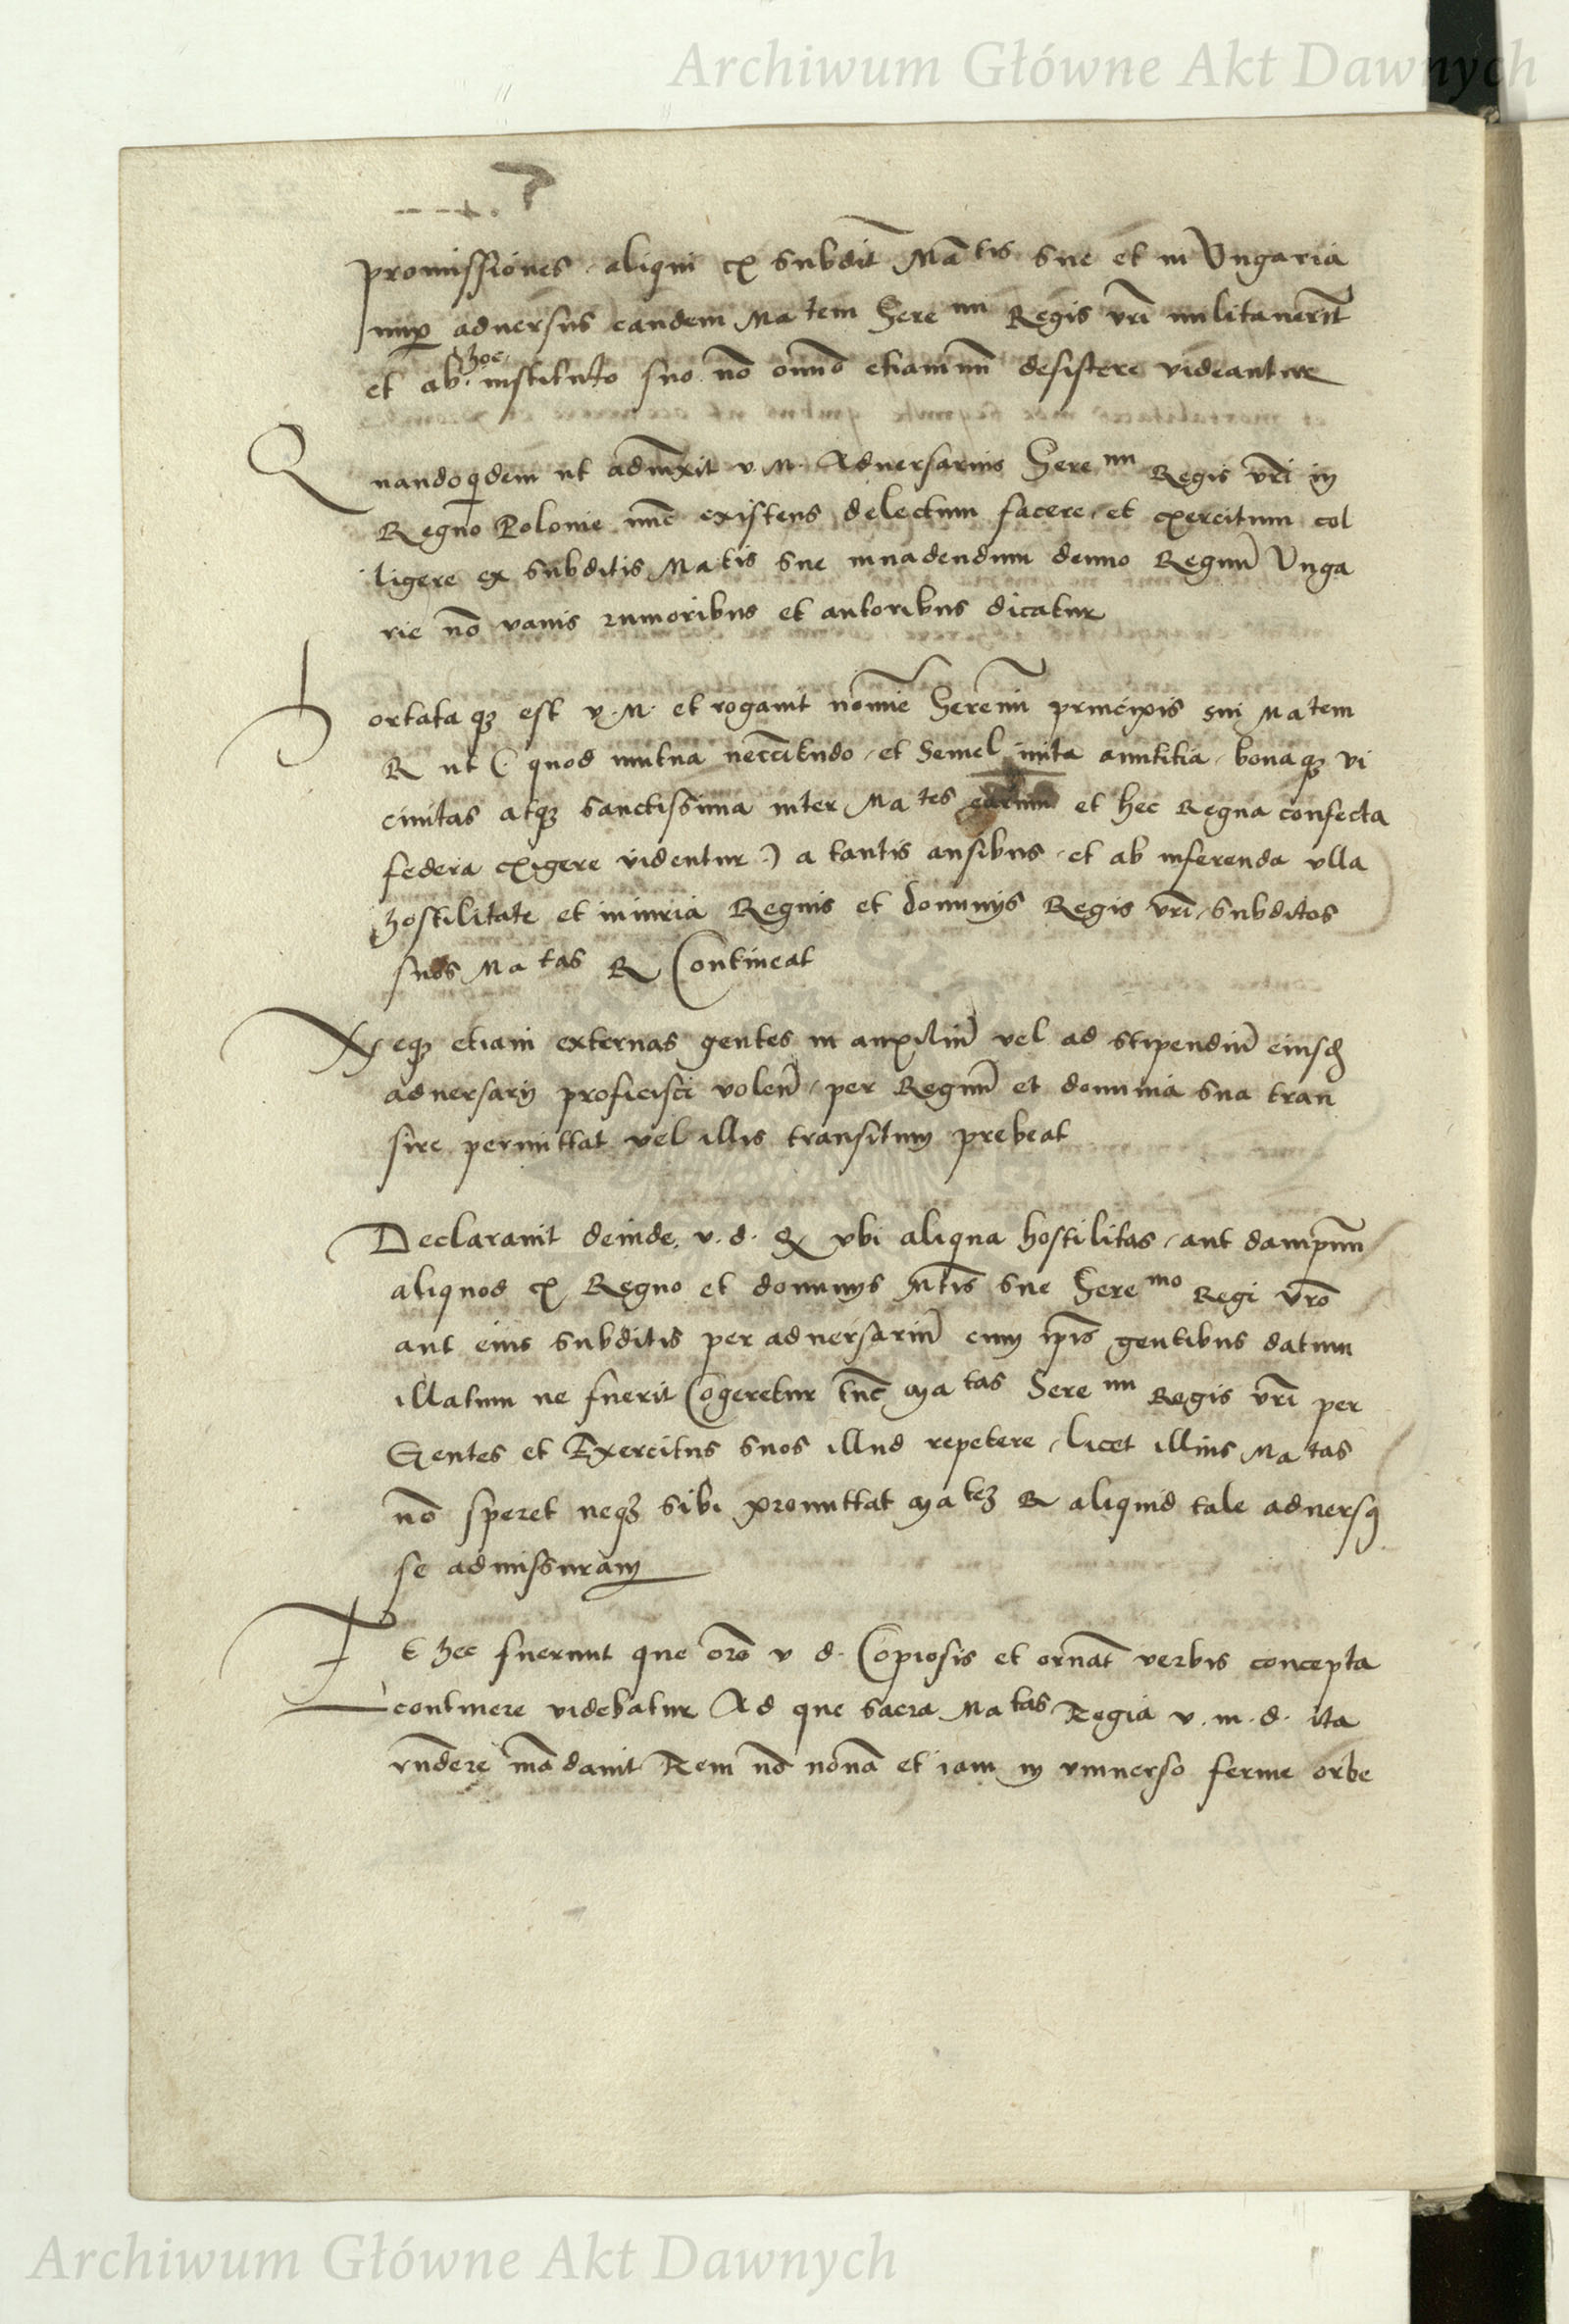 Archiwum Główne Akt Dawnych
promissiones aliqui ex subdit Ma tis sue et in Ungaria
nup adversus eandem Ma tem Sere mi Regis vri militaverit
hoc
et ab instituto suo no omno etiamnu desistere videantur
Quandoqdem ut aduxit v. M. Adversarius Sere mi Regis vri in
Regno Polonie nuc existens delectum facere et exercitum col
ligere ex subditis Ma tis sue invadendum denuo Regnu Unga
rie no vanis rumoribus et autoribus dicatur
Hortataq est v. M. et rogavit nomie Seremi principis sui Ma tem
R ut (: quod mutua neccitudo et semel inita amititia bonaq vi
cinitas atq sanctissima inter Ma tes earum et hec Regna confecta
federa exigere videntur :) a tantis ausibus et ab inferenda ulla
hostilitate et iniuria Regnis et dominijs Regis vri subditos
suos Ma tas R Contineat
Neq etiam externas gentes in auxiliu vel ad stipendiu eiusd
adversarij proficisci volen per Regnu et dominia sua tran
sire permittat vel illis transitum prebeat
Declaravit deinde v. d. q ubi aliqua hostilitas aut dampnu
aliquod ex Regno et dominijs Mtis sue Sere mo Regi vro
aut eius subditis per adversariu cum ipis gentibus datum
illatum ne fuerit Cogeretur tuc Ma tas Sere mi Regis vri per
Gentes et Exercitus suos illud repetere licet illius Ma tas
no speret neq sibi promittat Ma tez R aliquid tale adversq
se admissuram
Et hec fuerunt que oro v d. Copiosis et ornat verbis concepta
continere videbatur Ad que sacra Ma tas Regia v. m. d. ita
rndere madavit Rem no nova et iam in universo ferme orbe
Archiwum Główne Akt Dawnych